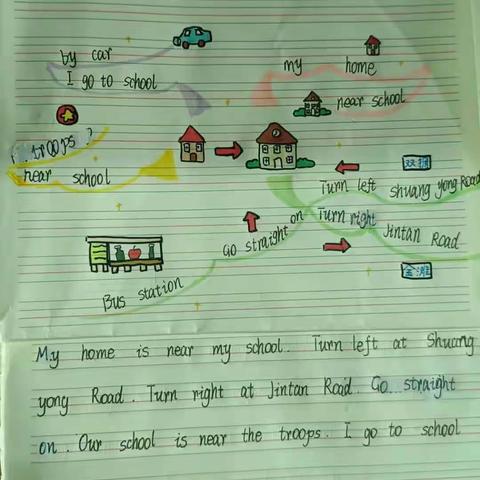 by car
I go to school
my home
near school
troops ?
near school
Turn left shuang yong Road
Go straight on
Turn right Jintan Road
Bus station
My home is near my school. Turn left at Shuang
yong Road. Turn right at Jintan Road. Go straight
on. Our school is near the troops. I go to school